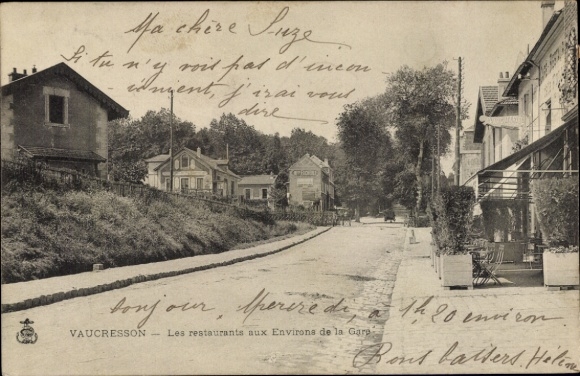 Ma chère Suze
Si tu n'y vois pas d'incon
vénient j'irai vous
dire
bonjour, Mercredi, à 1h. 20 environ
VAUCRESSON — Les restaurants aux Environs de la Gare
Bons baisers, Hélène